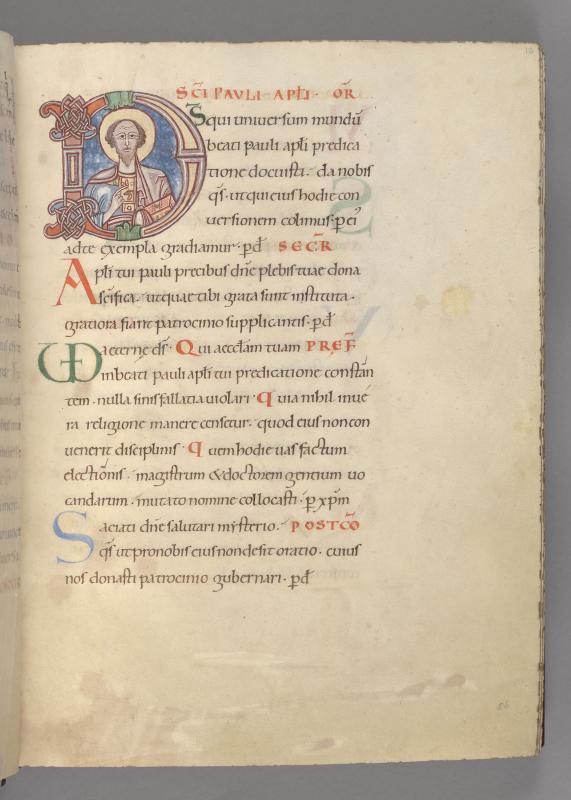 SC̄I PAULI APƚI · OR̄
DS̄ qui uniuersum mundū
beati pauli apƚi predica
tione docuisti · da nobis
qs̄ · ut qui eius hodie con
uersionem colimus · ꝑ ei'
ad te exempla gradiamur · ꝑ dm̄ SECR̄
Apƚi tui pauli precibus dn̄e plebis tuae dona
sc̄ifica · ut quae tibi grata sunt instituta ·
gratiora fiant patrocinio supplicantis · ꝑ dm̄
VD aeterne ds̄ · Qui aeccƚam tuam PREF̄
in beati pauli apƚi tui predicatione constan̄
tem · nulla sinis fallatia uiolari · quia nihil in ue
ra religione manere censetur · quod eius non con
uenerit disciplinis · quem hodie uas factum
electionis · magistrum & doctorem gentium uo
candarum · mutato nomine collocasti · ꝑ xp̄m
Saciati dn̄e salutari mysterio · POSTCO͞
qs̄ ut pro nobis eius non desit oratio · cuius
nos donasti patrocinio gubernari · ꝑ dm̄